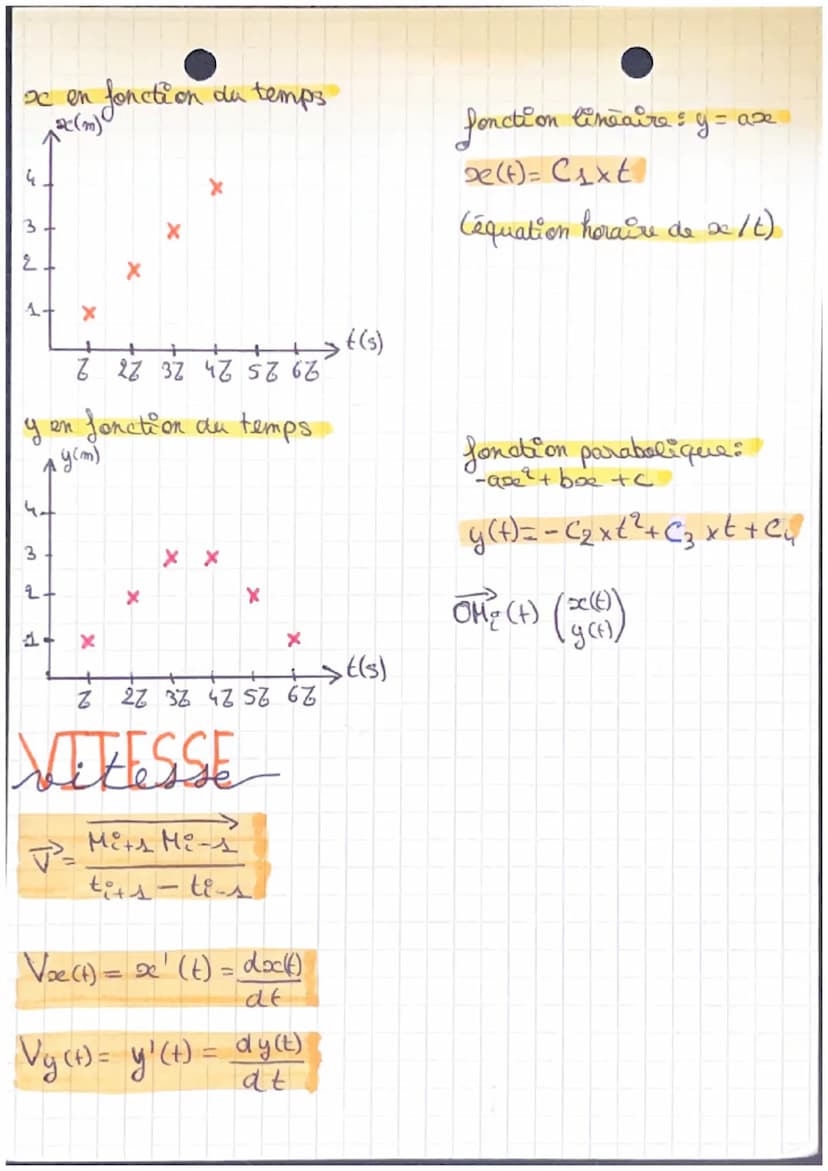 x en fonction du temps
x(m)
4
3
2
1
t(s)
τ 2τ 3τ 4τ 5τ 6τ
fonction linéaire : y = ax
x(t) = C1 x t
(équation horaire de x/t)
y en fonction du temps
y(m)
4
3
2
1
t(s)
τ 2τ 3τ 4τ 5τ 6τ
fonction parabolique :
-ax² + bx + c
y(t) = - C2 x t² + C3 x t + C4
OMi(t) (x(t)
y(t))
VITESSE
vitesse
V = Mi+1 Mi-1
ti+1 - ti-1
Vx(t) = x'(t) = dx(t)
dt
Vy(t) = y'(t) = dy(t)
dt